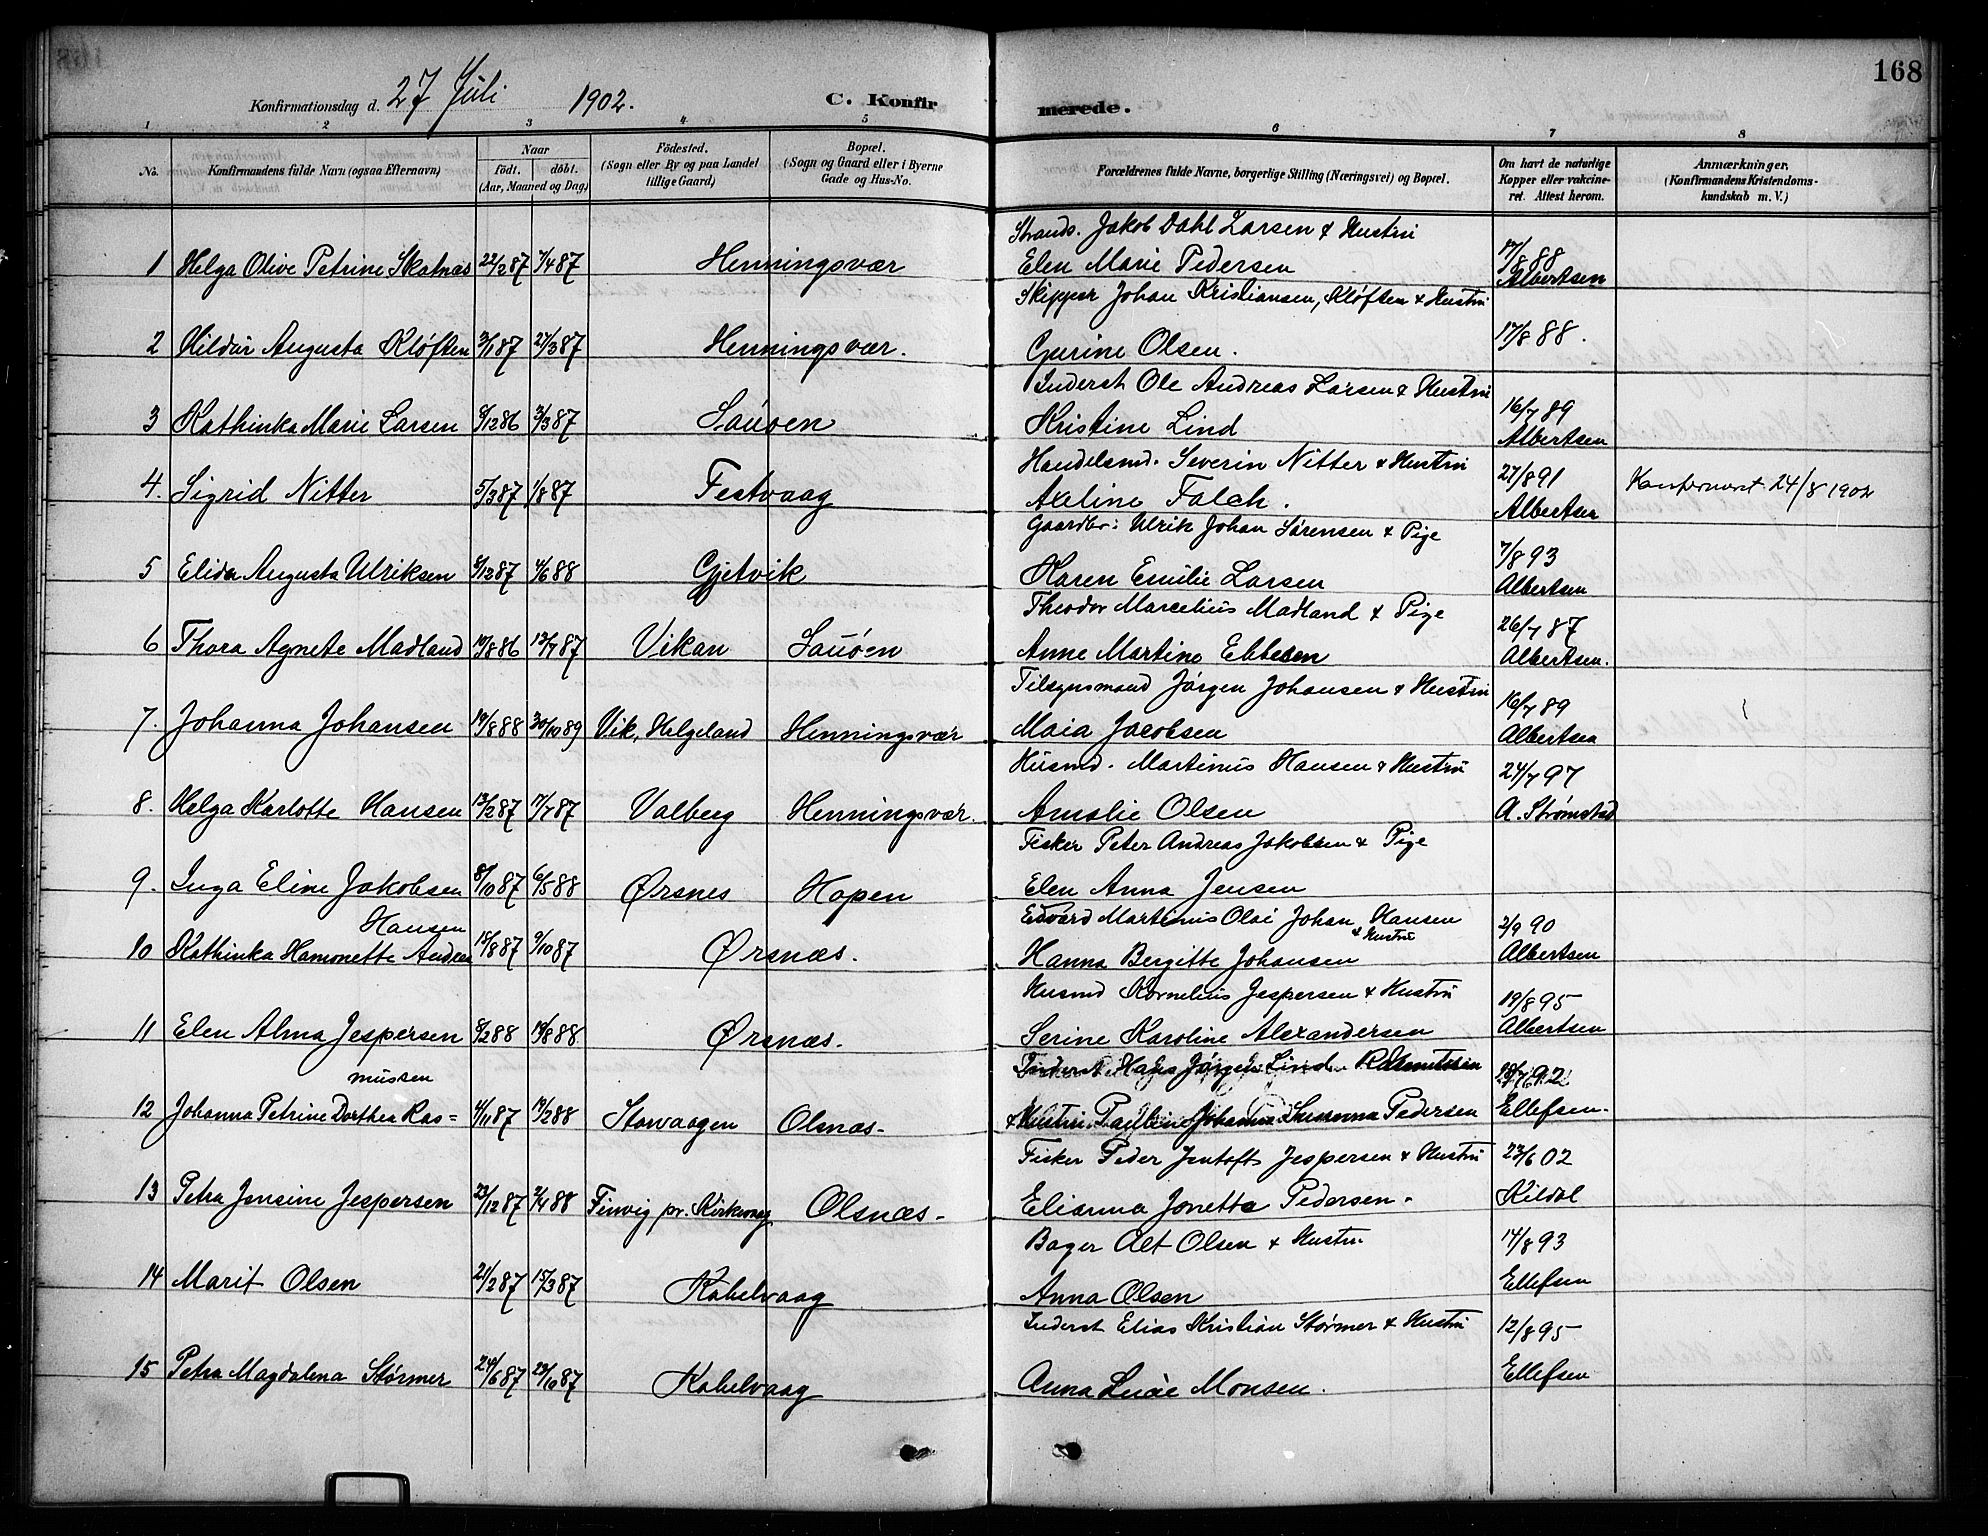 168
Konfirmationsdag d. 27 Juli 1902. C. Konfirmerede.
1 2 3 4 5 6 7 8
No. Konfirmandens fulde Navn (ogsaa Efternavn) Naar født. døbt. (Aar, Maaned og Dag) Fødested. (Sogn eller By og paa Landet tillige Gaard) Bopæl. (Sogn og Gaard eller i Byerne Gade og Hus-No. Forældrenes fulde Navne, borgerlige Stilling (Næringsvei) og Bopæl. Om havt de naturlige Kopper eller vakcineret. Attest herom. Anmærkninger. (Konfirmandens Kristendomskundskab m. V.)
Strands. Jakob Dahl Larsen & Hustru
1 Helga Olive Petrine Skatnæs 22/2 87 7/4 87 Henningsvær Elen Marie Pedersen 17/8 88 Albertsen
Skipper Johan Kristiansen, Kløften & Hustru
2 Hildur Augusta Kløften 3/1 87 27/3 87 Henningsvær. Gurine Olsen. 17/8 88.
Inderst Ole Andreas Larsen & Hustru
3 Kathinka Marie Larsen 8/12 86 3/3 87 Sauøen Kristine Lind 16/7 89 Albertsen
Handelsmd. Severin Nitter & Hustru
4. Sigrid Nitter 5/3 87 1/8 87 Festvaag Axeline Falch. 27/8 91 Albertsen Konfirmeret 24/8 1902
Gaardbr: Ulrik Johan Sørensen & Pige
5 Elida Augusta Ulriksen 8/12 87 4/6 88 Gjetvik Karen Emilie Larsen 7/8 93 Albertsen
Theodor Marcelius Madland & Pige
6 Thora Agnete Madland 19/8 86 13/7 87 Vikan Sauøen Anne Martine Ebbesen 26/7 87 Albertsen.
Tilsynsmand Jørgen Johansen & Hustru
7. Johanna Johansen 19/8 88 30/10 89 Vik, Helgeland Henningsvær Maia Jacobsen 16/7 89 Albertsen
Husmd. Martinus Hansen & Hustru
8. Helga Karlotte Hansen 13/2 87 17/7 87 Valberg Henningsvær. Amalie Olsen 24/7 97 A. Strømstad
Fisker Peter Andreas Jakobsen & Pige
9. Inga Eline Jakobsen 8/10 87 6/5 88 Ørsnes Hopen Elen Anna Jensen
Hansen Edvard Martinus Olai Johan Hansen & Hustru
10 Kathinka Hamonette Andrea 15/8 87 9/10 87 Ørsnæs. Hanna Bergitte Johansen 2/9 90 Albertsen
Husmd Kornelius Jespersen & Hustru
11 Elen Alma Jespersen 8/2 88 19/8 88 Ørsnæs. Serine Karoline Alexandersen 19/8 95 Albertsen
mussen Hans Jørgen Lind
12 Johanna Petrine Dorthea Ras= 4/11 87 19/2 88 Storvaagen Olsnæs- & Hustru Johanna Susanna Pedersen Ellefsen.
Fisker Peder Jentoft Jespersen & Hustru
13 Petra Jensine Jespersen 23/12 87 2/4 88 Finvig pr. Kirkevaag Olsnæs- Elianna Jonetta Pedersen. 23/6 02 Kildal
Bager Alt Olsen & Hustru
14 Marit Olsen 21/2 87 15/3 87 Kabelvaag Anna Olsen 14/8 93 Ellefsen
Inderst Elias Kristian Størmer & Hustru
15 Petra Magdalena Størmer 24/6 87 23/10 87 Kabelvaag Anna Lucie Monsen. 12/8 95 Ellefsen